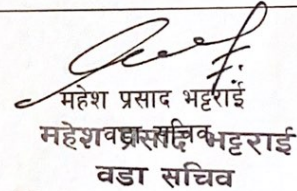 महेश प्रसाद भट्टराई
वडा सचिव
महेश प्रसाद भट्टराई
वडा सचिव